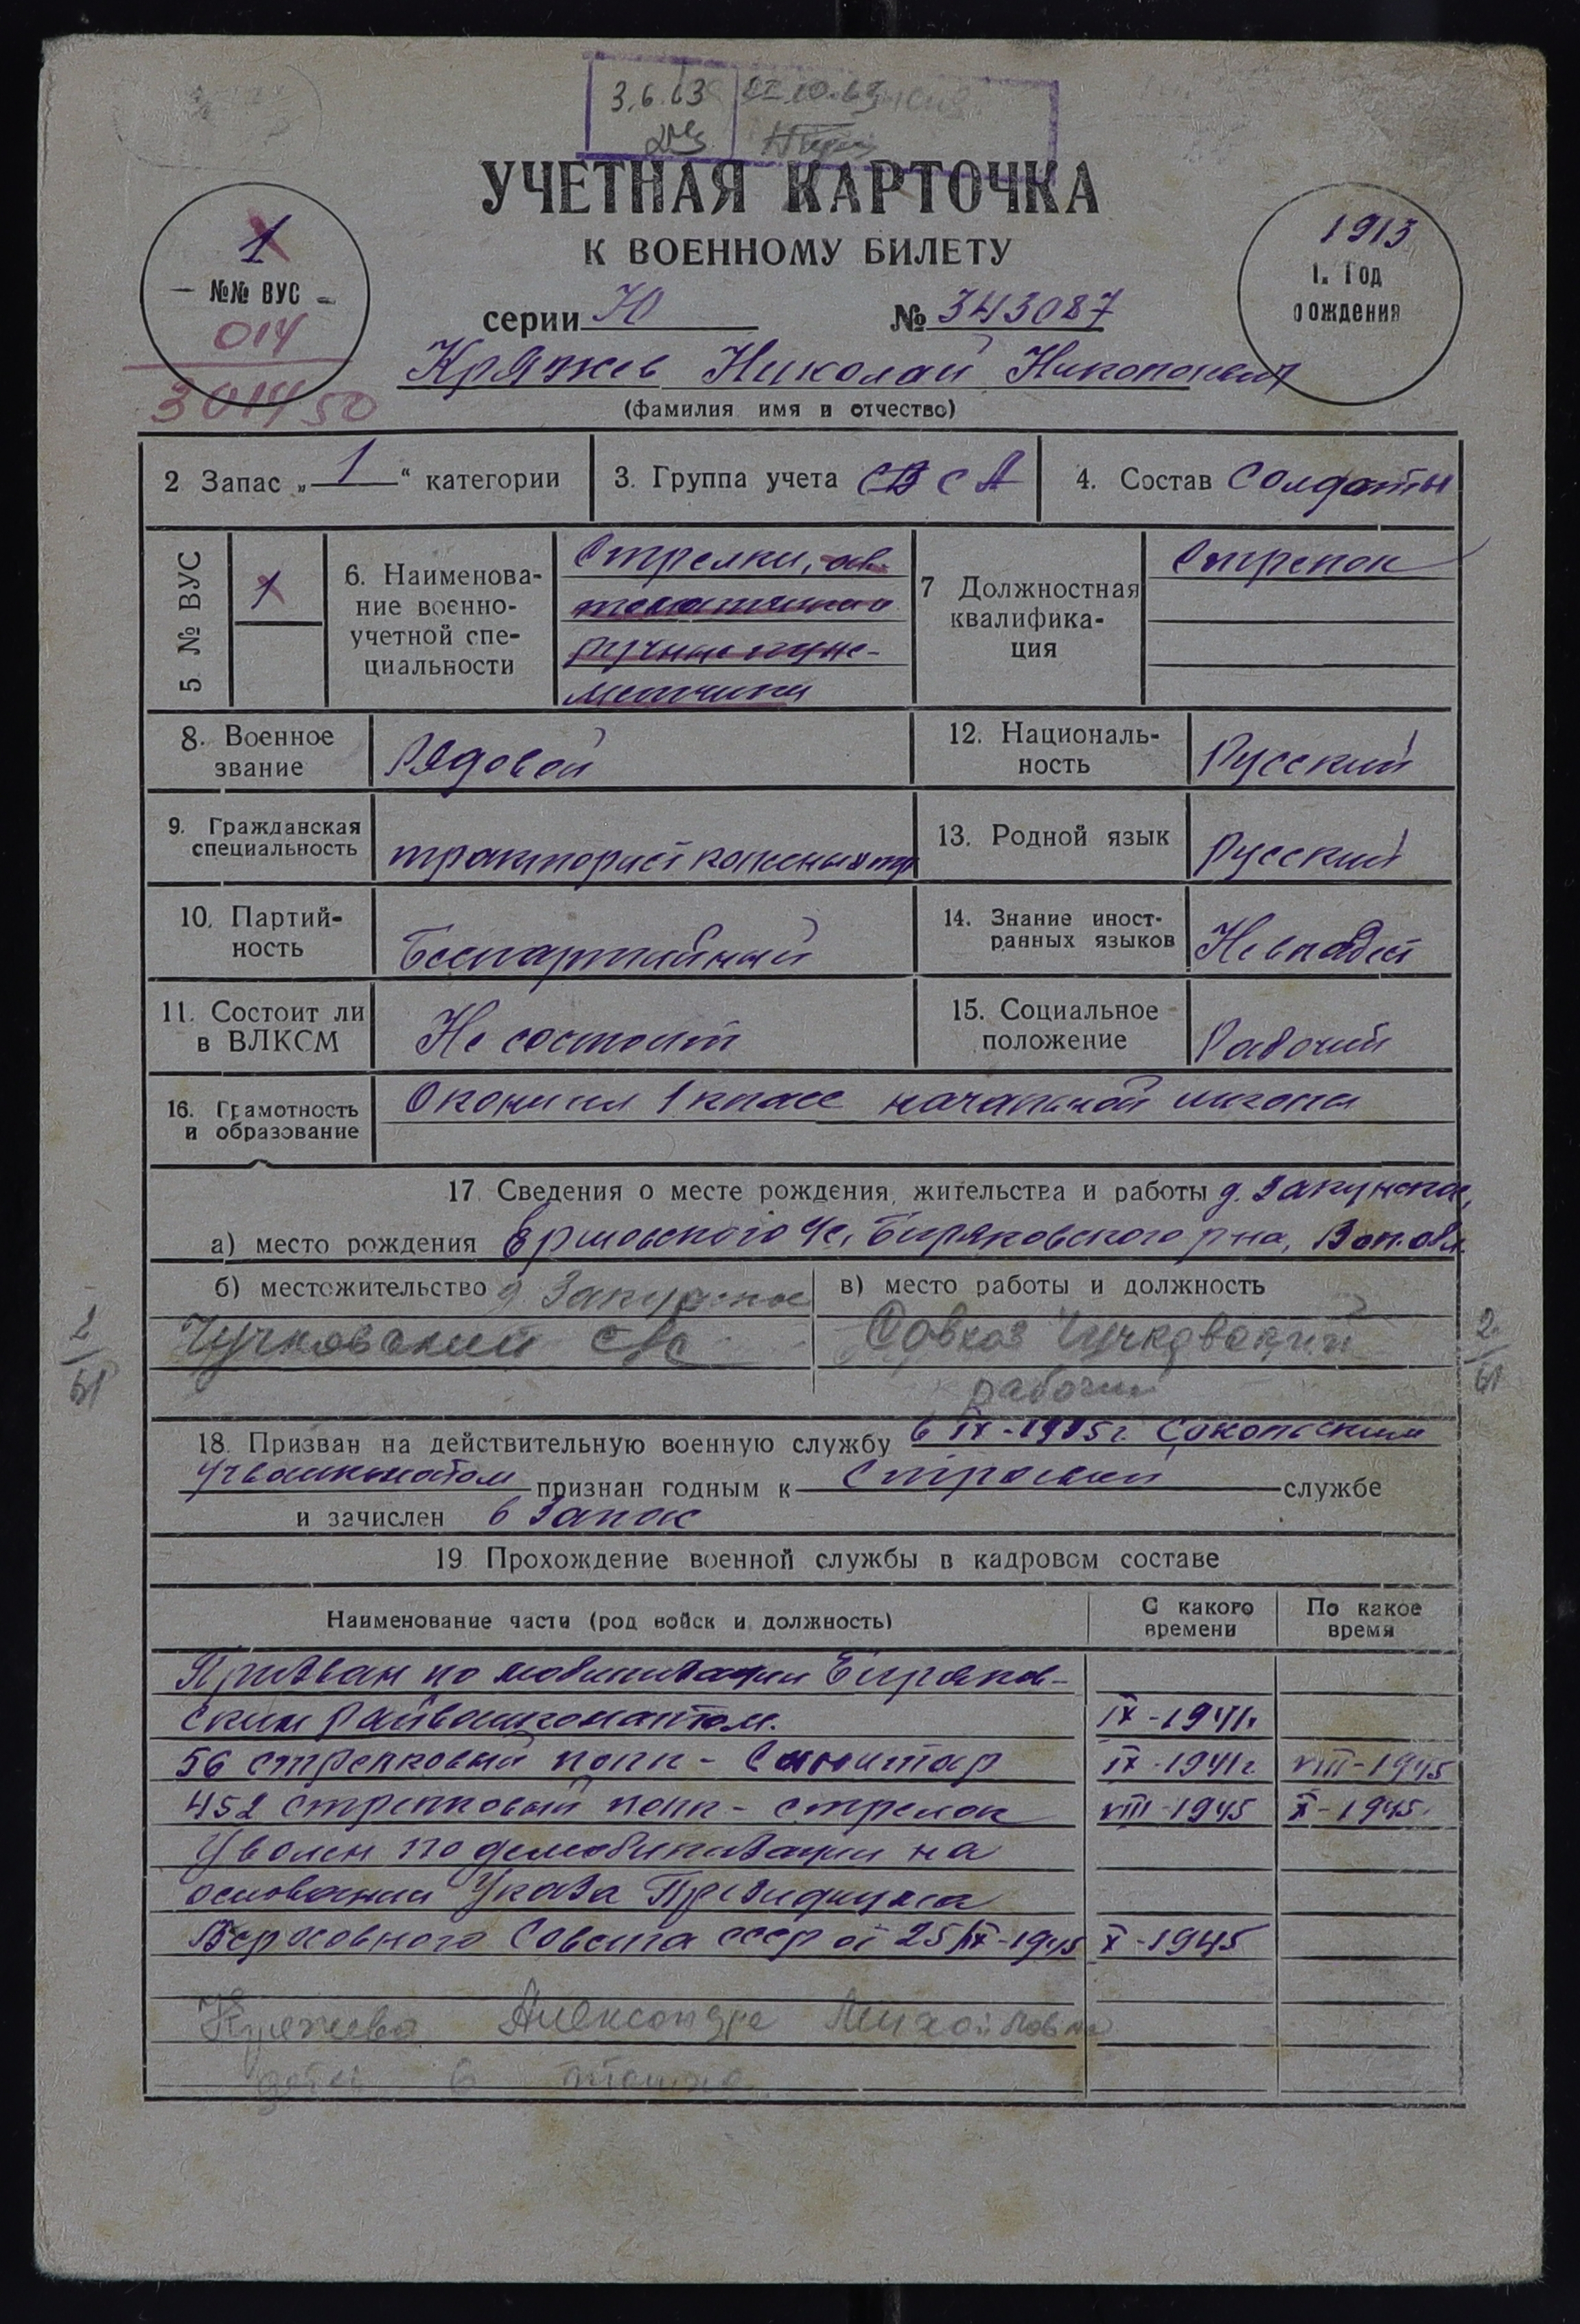 3.6.63
УЧЕТНАЯ КАРТОЧКА
К ВОЕННОМУ БИЛЕТУ
1
№№ ВУС
014
301450
1913
1. Год рождения
серии Ю № 343087
Кряжев Николай Никопонович
(фамилия имя и отчество)
2 Запас „ 1 “ категории
3. Группа учета СВ СА
4. Состав Солдаты
5 № ВУС
1
6. Наименова-
ние военно-
учетной спе-
циальности
Стрелки, ав-
томатчики
ручные пуле-
метчики
7 Должностная
квалифика-
ция
Стрелок
8. Военное
звание
Рядовой
12. Националь-
ность
Русский
9. Гражданская
специальность
тракторист
13. Родной язык
Русский
10. Партий-
ность
Беспартийный
14. Знание иност-
ранных языков
Не владеет
11. Состоит ли
в ВЛКСМ
Не состоит
15. Социальное
положение
Рабочий
16. Грамотность
и образование
Окончил 1 класс начальной школы
17. Сведения о месте рождения, жительства и работы д. Закунское,
а) место рождения Ершовского с/с, Биряковского р-на, Вол. обл.
б) местожительство д. Закунское
Чучковский с/с
в) место работы и должность
Совхоз Чучковский
рабочий
2/61
2/61
18. Призван на действительную военную службу 6 IX-1935 г. Сокольским
признан годным к строевой службе
и зачислен в Запас
19. Прохождение военной службы в кадровом составе
Наименование части (род войск и должность)
С какого
времени
По какое
время
Призван по мобилизации Биряков-
ским райвоенкоматом. IX-1941г.
56 стрелковый полк - Санитар IX-1941г VIII-1945
452 стрелковый полк - стрелок VIII-1945 X-1945.
Уволен по демобилизации на
основании Указа Президиума
Верховного Совета СССР от 25/IX-1945 X-1945
Кряжева Александра Михайловна
детей